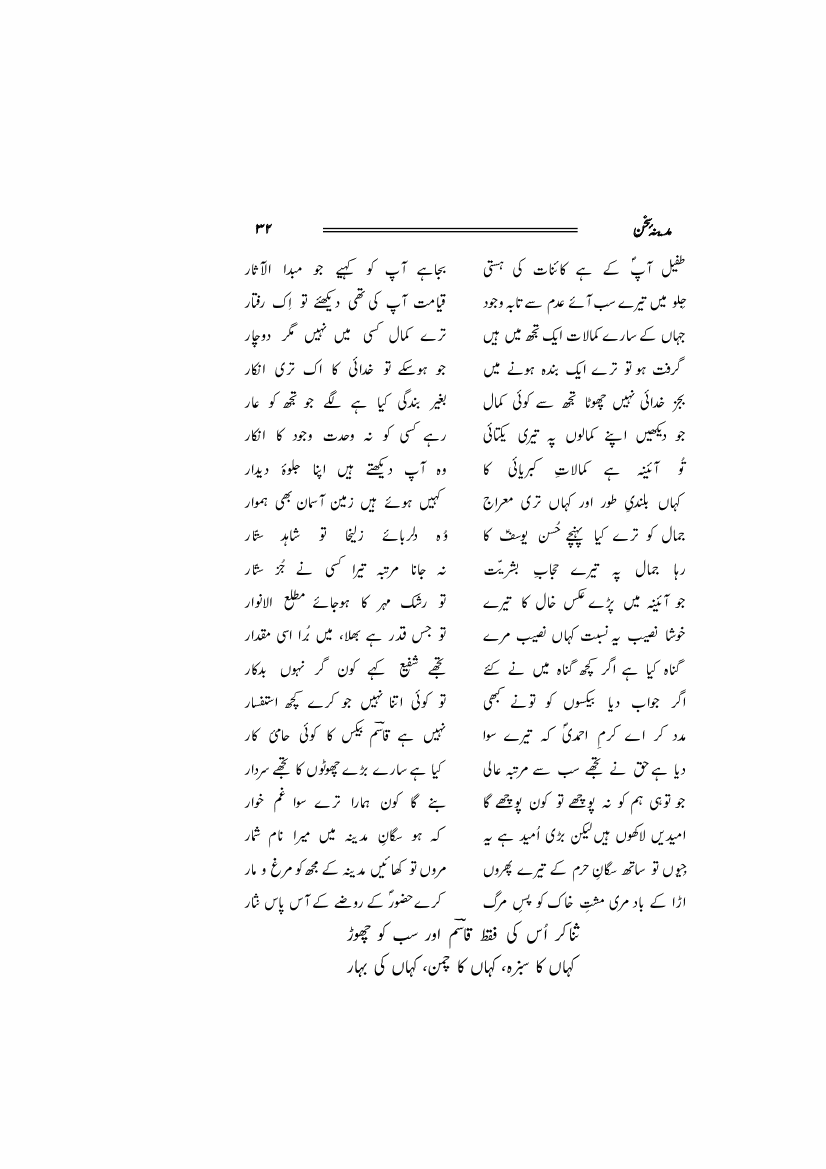 مدینۂ سخن ۳۲
طفیل آپؐ کے ہے کائنات کی ہستی بجاہے آپ کو کہیے جو مبدا الآثار
جلو میں تیرے سب آئے عدم سے تابہ وجود قیامت آپ کی تھی دیکھئے تو اِک رفتار
جہاں کے سارے کمالات ایک تجھ میں ہیں ترے کمال کسی میں نہیں مگر دوچار
گرفت ہو تو ترے ایک بندہ ہونے میں جو ہوسکے تو خدائی کا اک تری انکار
بجز خدائی نہیں چھوٹا تجھ سے کوئی کمال بغیر بندگی کیا ہے لگے جو تجھ کو عار
جو دیکھیں اپنے کمالوں پہ تیری یکتائی رہے کسی کو نہ وحدت وجود کا انکار
تُو آئینہ ہے کمالاتِ کبریائی کا وہ آپ دیکھتے ہیں اپنا جلوۂ دیدار
کہاں بلندیِ طور اور کہاں تری معراج کہیں ہوئے ہیں زمین آسمان بھی ہموار
جمال کو ترے کیا پہنچے حُسن یوسفؑ کا وُہ دلربائے زلیخا تو شاہد ستّار
رہا جمال پہ تیرے حجابِ بشریّت نہ جانا مرتبہ تیرا کسی نے جُز ستّار
جو آئینہ میں پڑے عکس خال کا تیرے تو رشک مہر کا ہوجائے مطلع الانوار
خوشا نصیب یہ نسبت کہاں نصیب مرے تو جس قدر ہے بھلا، میں بُرا اسی مقدار
گناہ کیا ہے اگر کچھ گناہ میں نے کئے تجھے شفیع کہے کون گر نہوں بدکار
اگر جواب دیا بیکسوں کو تونے کبھی تو کوئی اتنا نہیں جو کرے کچھ استفسار
مدد کر اے کرمِ احمدیؐ کہ تیرے سوا نہیں ہے قاسمؔ بیکس کا کوئی حامیٔ کار
دیا ہے حق نے تجھے سب سے مرتبہ عالی کیا ہے سارے بڑے چھوٹوں کا تجھے سردار
جو توہی ہم کو نہ پوچھے تو کون پوچھے گا بنے گا کون ہمارا ترے سوا غم خوار
امیدیں لاکھوں ہیں لیکن بڑی اُمید ہے یہ کہ ہو سگانِ مدینہ میں میرا نام شمار
جِیوں تو ساتھ سگانِ حرم کے تیرے پھروں مروں تو کھائیں مدینہ کے مجھ کو مرغ و مار
اڑا کے باد مری مشتِ خاک کو پسِ مرگ کرے حضورؐ کے روضے کے آس پاس نثار
ثنا کر اُس کی فقط قاسمؔ اور سب کو چھوڑ
کہاں کا سبزہ، کہاں کا چمن، کہاں کی بہار